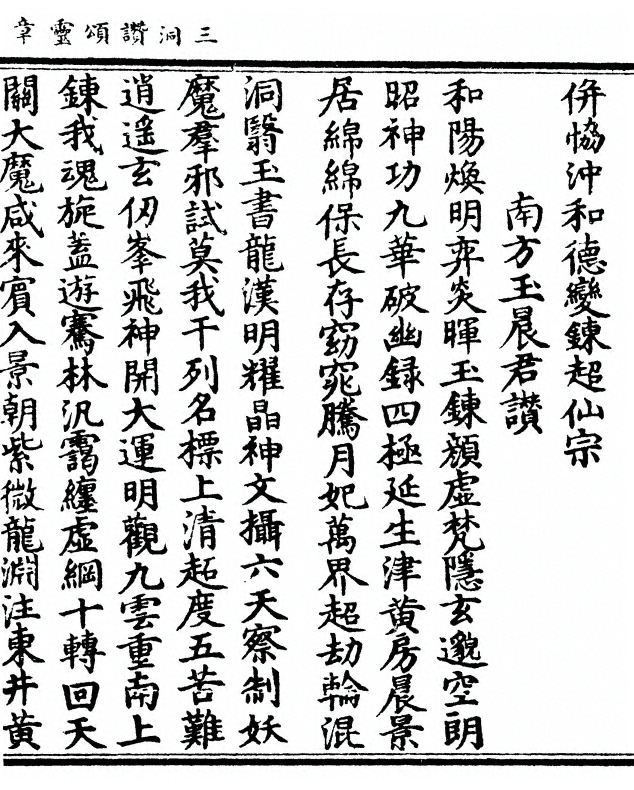 三洞讚頌靈章
併恊沖和德變鍊超仙宗
南方玉晨君讚
和陽煥明弈炎暉玉鍊顏虛梵隱玄邈空朗
昭神功九華破幽録四極延生津黄房晨景
居綿綿保長存窈窕騰月妃萬界超劫輪混
洞翳玉書龍漢明耀晶神文攝六天察制妖
魔羣邪試莫我干列名標上清起度五苦難
逍遥玄仞峯飛神開大運明觀九雲重南上
鍊我魂旋蓋遊騫林汎靄纏虛綱十轉回天
關大魔咸來賓入景朝紫微龍淵注東井黄